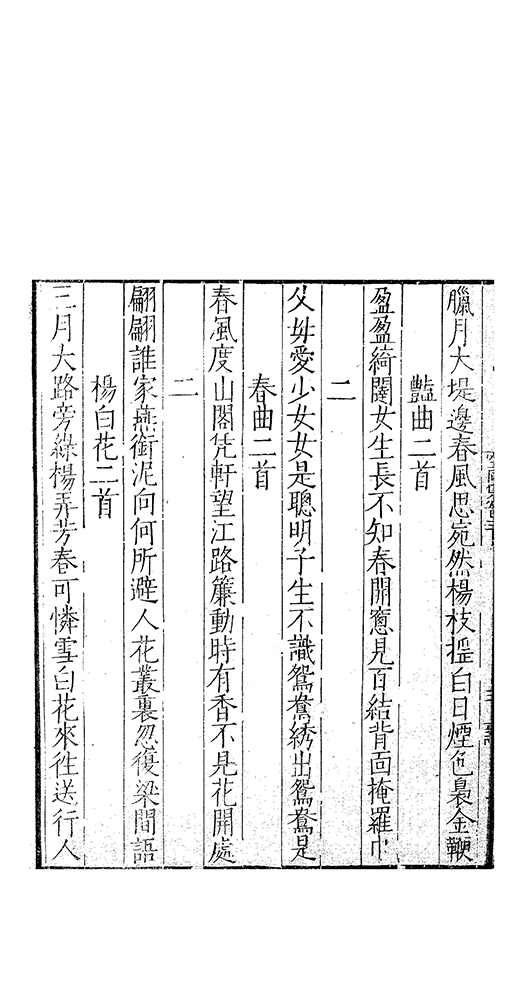 臘月大堤邊春風思宛然楊枝搖白日煙色裊金鞭
豔曲二首
盈盈綺閣女生長不知春開窻見百結背面掩羅巾
二
父母愛少女女是聰明子生不識鴛鴦綉出鴛鴦是
春曲二首
春風度山閣凭軒望江路簾動時有香不見花開處
二
翩翩誰家燕銜泥向何所避人花叢裏忽復梁間語
楊白花二首
三月大路旁綠楊弄芳春可憐雪白花來徃送行人